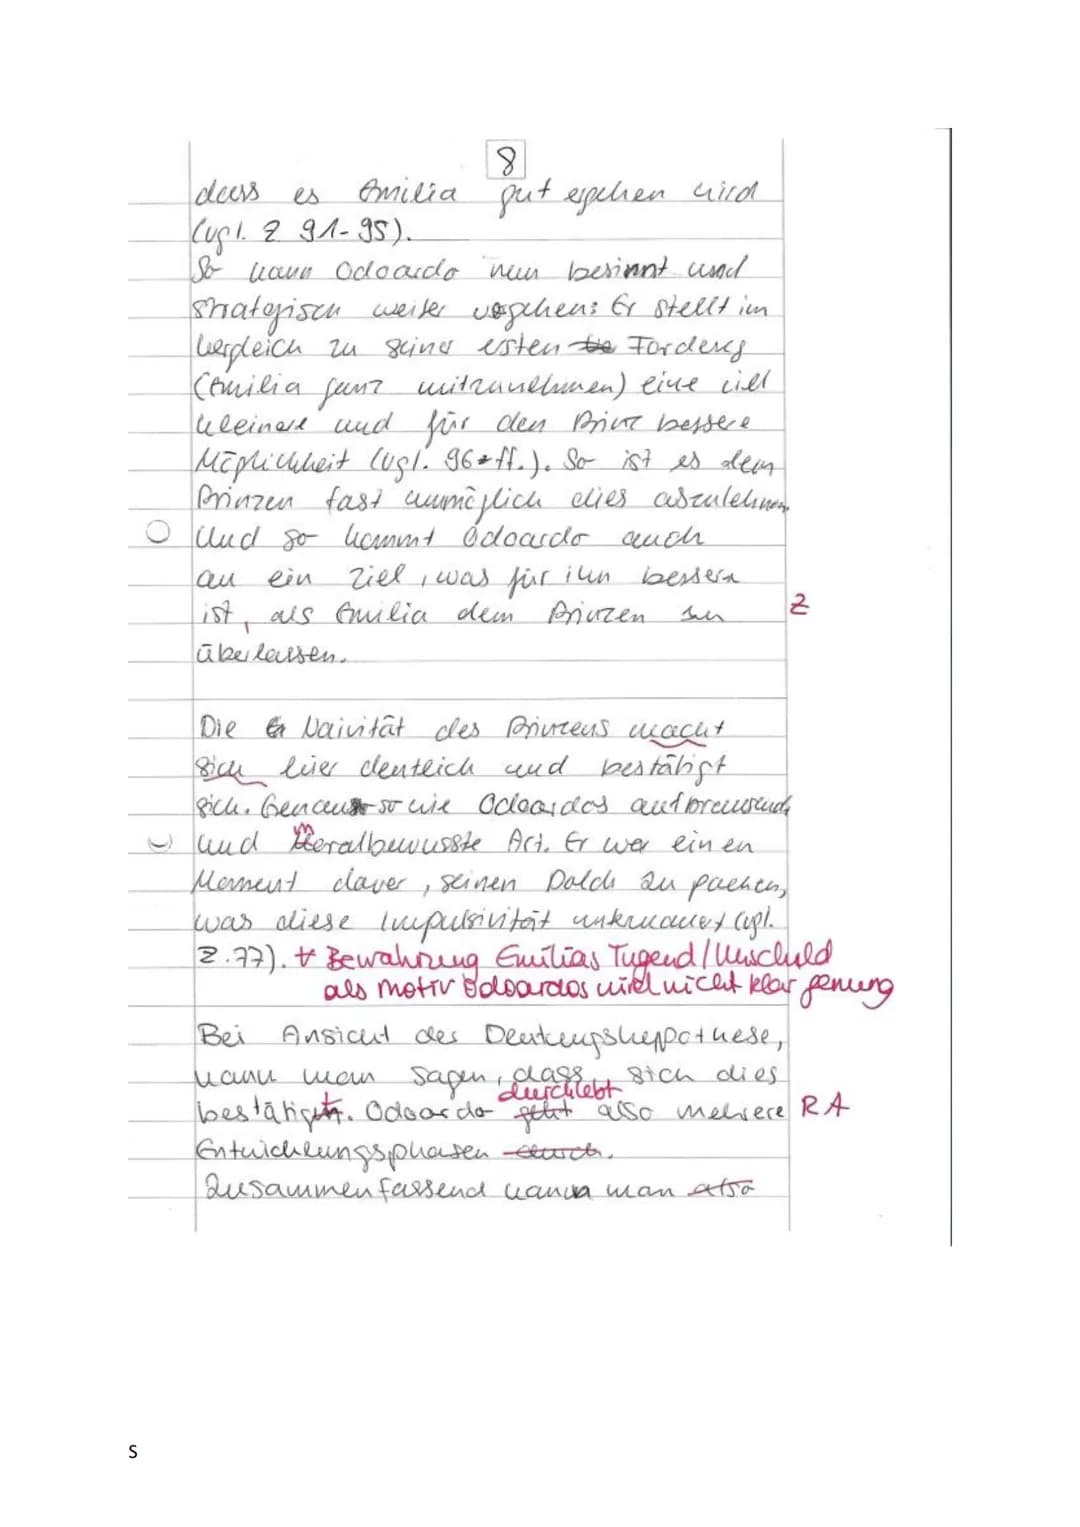 8
dass es Emilia gut ergehen wird
(vgl. Z 91-95).
So kann Odoardo nun besinnt und
strategisch weiter vorgehen: Er stellt im
Vergleich zu seiner ersten Forderung
(Emilia ganz mitzunehmen) eine viel
kleinere und für den Prinz bessere
Möglichkeit (vgl. 96 ff.). So ist es dem
Prinzen fast unmöglich dies abzulehnen.
Und so kommt Odoardo auch
an ein Ziel, was für ihn bessern
ist, als Emilia dem Prinzen zu
Z
überlassen.
Die Naivität des Prinzens macht
sich hier deutlich und bestätigt
sich. Genauso wie Odoardos aufbrausende
und moralbewusste Art. Er war einen
Moment davor, seinen Dolch zu packen,
was diese Impulsivität untermauert (vgl.
Z.77). + Bewahrung Emilias Tugend/Unschuld
als Motiv Odoardos wird nicht klar genung
Bei Ansicht der Deutungshyppothese,
kann man sagen, dass sich dies
durchlebt
bestätigt. Odoardo geht also mehrere RA
Entwicklungsphasen durch.
Zusammenfassend kann man also
S